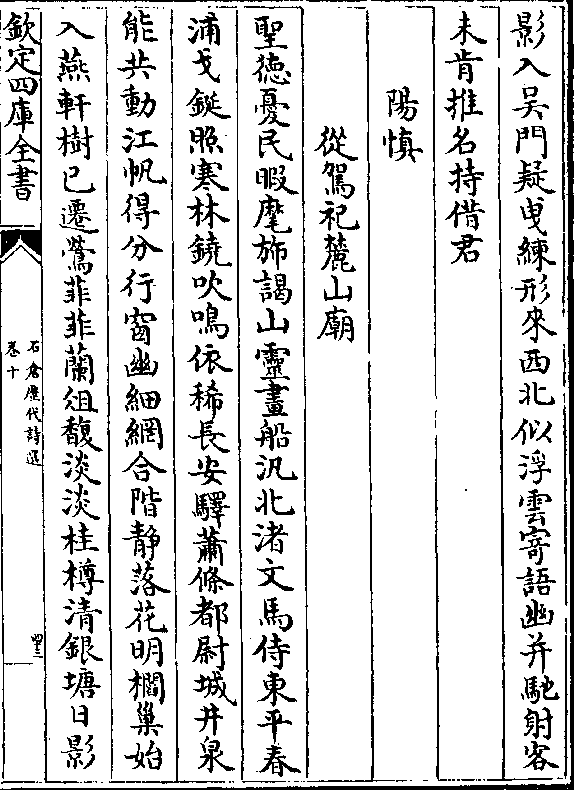 影入吳門疑曳練形來西北似浮雲寄語幽并馳射客
未肯推名持借君
陽慎
從駕祀麓山廟
聖德憂民暇麾斾謁山靈畫船汎北渚文馬侍東平春
浦戈鋋照寒林鐃吹鳴依稀長安驛蕭條都尉城井泉
能共動江帆得分行窗幽細網合階靜落花明櫩巢始
入燕軒樹已遷鶯菲菲蘭俎馥淡淡桂樽清銀塘日影
欽定四庫全書
石倉歷代詩選
卷十